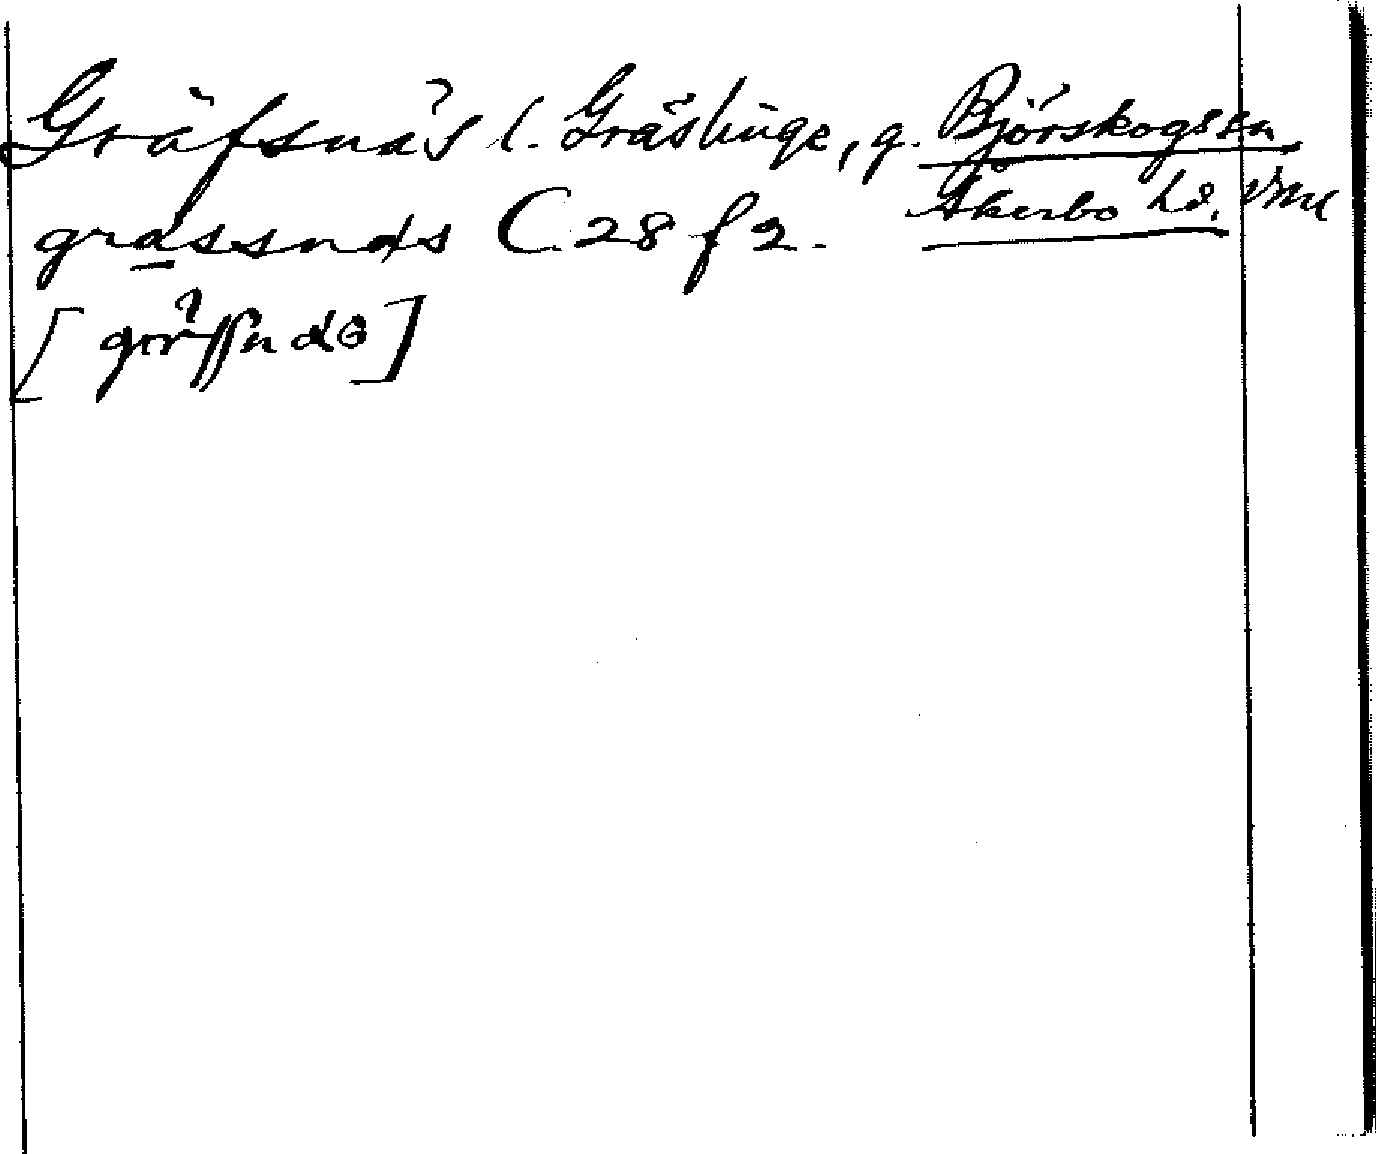 Gräfsnäs l. Gräslinge, g. Björskogs sn
Åkerbo hd. Vml
grassnäs C. 28 f 2.